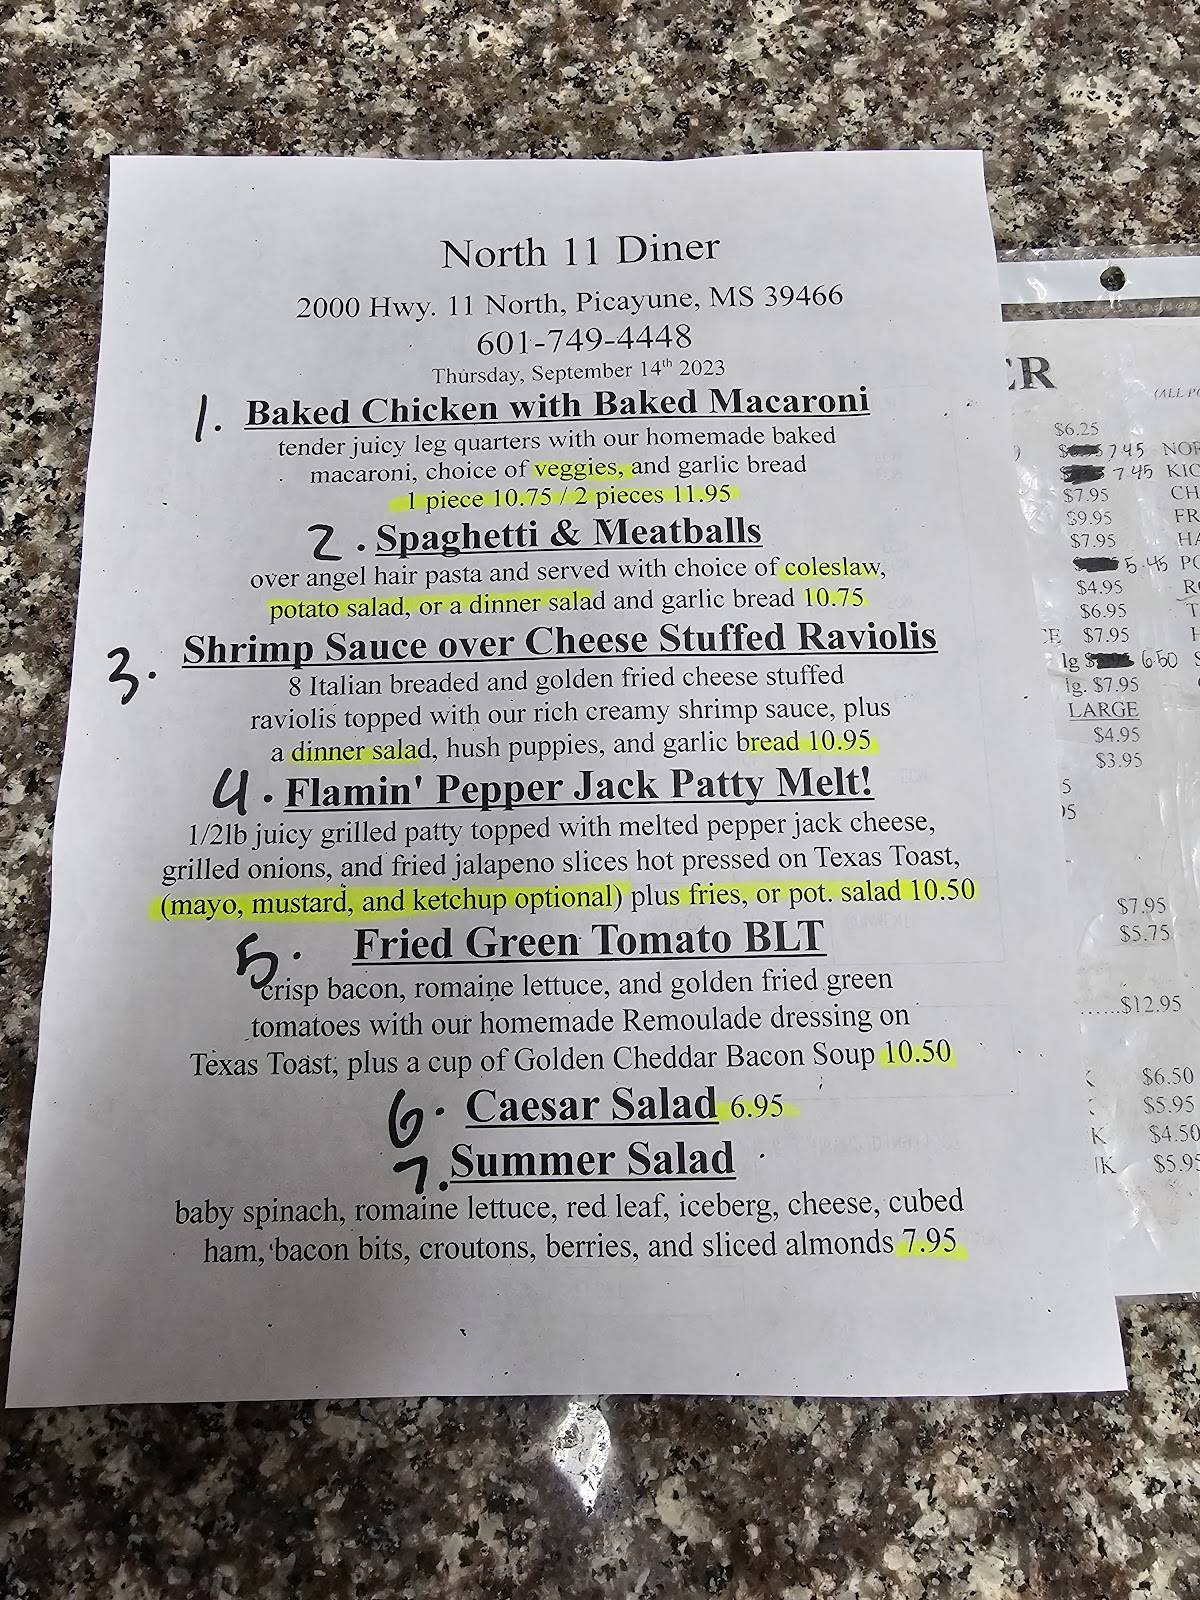 North 11 Diner
2000 Hwy. 11 North, Picayune, MS 39466
601-749-4448
Thursday, September 14th 2023
1. Baked Chicken with Baked Macaroni
tender juicy leg quarters with our homemade baked
macaroni, choice of veggies, and garlic bread
1 piece 10.75 / 2 pieces 11.95
2. Spaghetti & Meatballs
over angel hair pasta and served with choice of coleslaw,
potato salad, or a dinner salad and garlic bread 10.75
3. Shrimp Sauce over Cheese Stuffed Raviolis
8 Italian breaded and golden fried cheese stuffed
raviolis topped with our rich creamy shrimp sauce, plus
a dinner salad, hush puppies, and garlic bread 10.95
4. Flamin' Pepper Jack Patty Melt!
1/2lb juicy grilled patty topped with melted pepper jack cheese,
grilled onions, and fried jalapeno slices hot pressed on Texas Toast,
(mayo, mustard, and ketchup optional) plus fries, or pot. salad 10.50
5. Fried Green Tomato BLT
crisp bacon, romaine lettuce, and golden fried green
tomatoes with our homemade Remoulade dressing on
Texas Toast, plus a cup of Golden Cheddar Bacon Soup 10.50
6. Caesar Salad 6.95
7. Summer Salad
baby spinach, romaine lettuce, red leaf, iceberg, cheese, cubed
ham, bacon bits, croutons, berries, and sliced almonds 7.95
ER
(ALL
$6.25
7.45 NOR
7.45 KIC
$7.95 CH
$9.95 FR
$7.95 HA
5.45 PO
$4.95
$6.95
$7.95
lg $ 6.50
lg. $7.95
LARGE
$4.95
$3.95
$7.95
$5.75
......$12.95
$6.50
$5.95
K $4.50
K $5.95